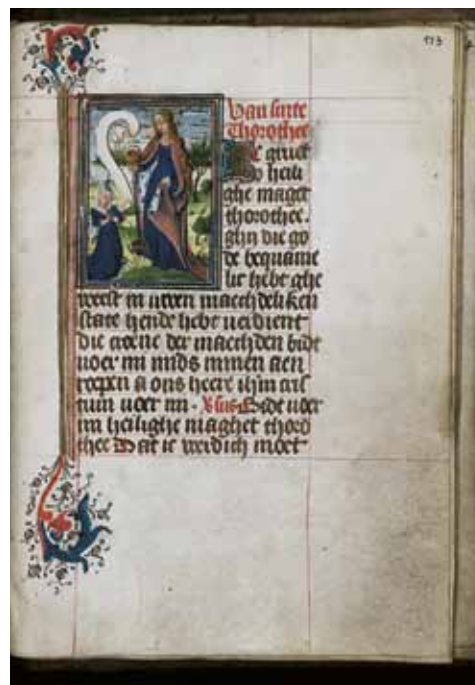 113
Van sinte
Thorothee
Ic gruet
u heili
ghe maget
thorothee.
ghij die go
de bequame
lic hebt ghe
weest in uwen maechdeliken
state hende hebt verdient
die croene der maechden bidt
voer mi mids minen aen
roepen a ons heere ihm cris
tum voer mi. Vsus Bidt voer
mi heilighe maghet thoro
thee Dat ic werdich moet